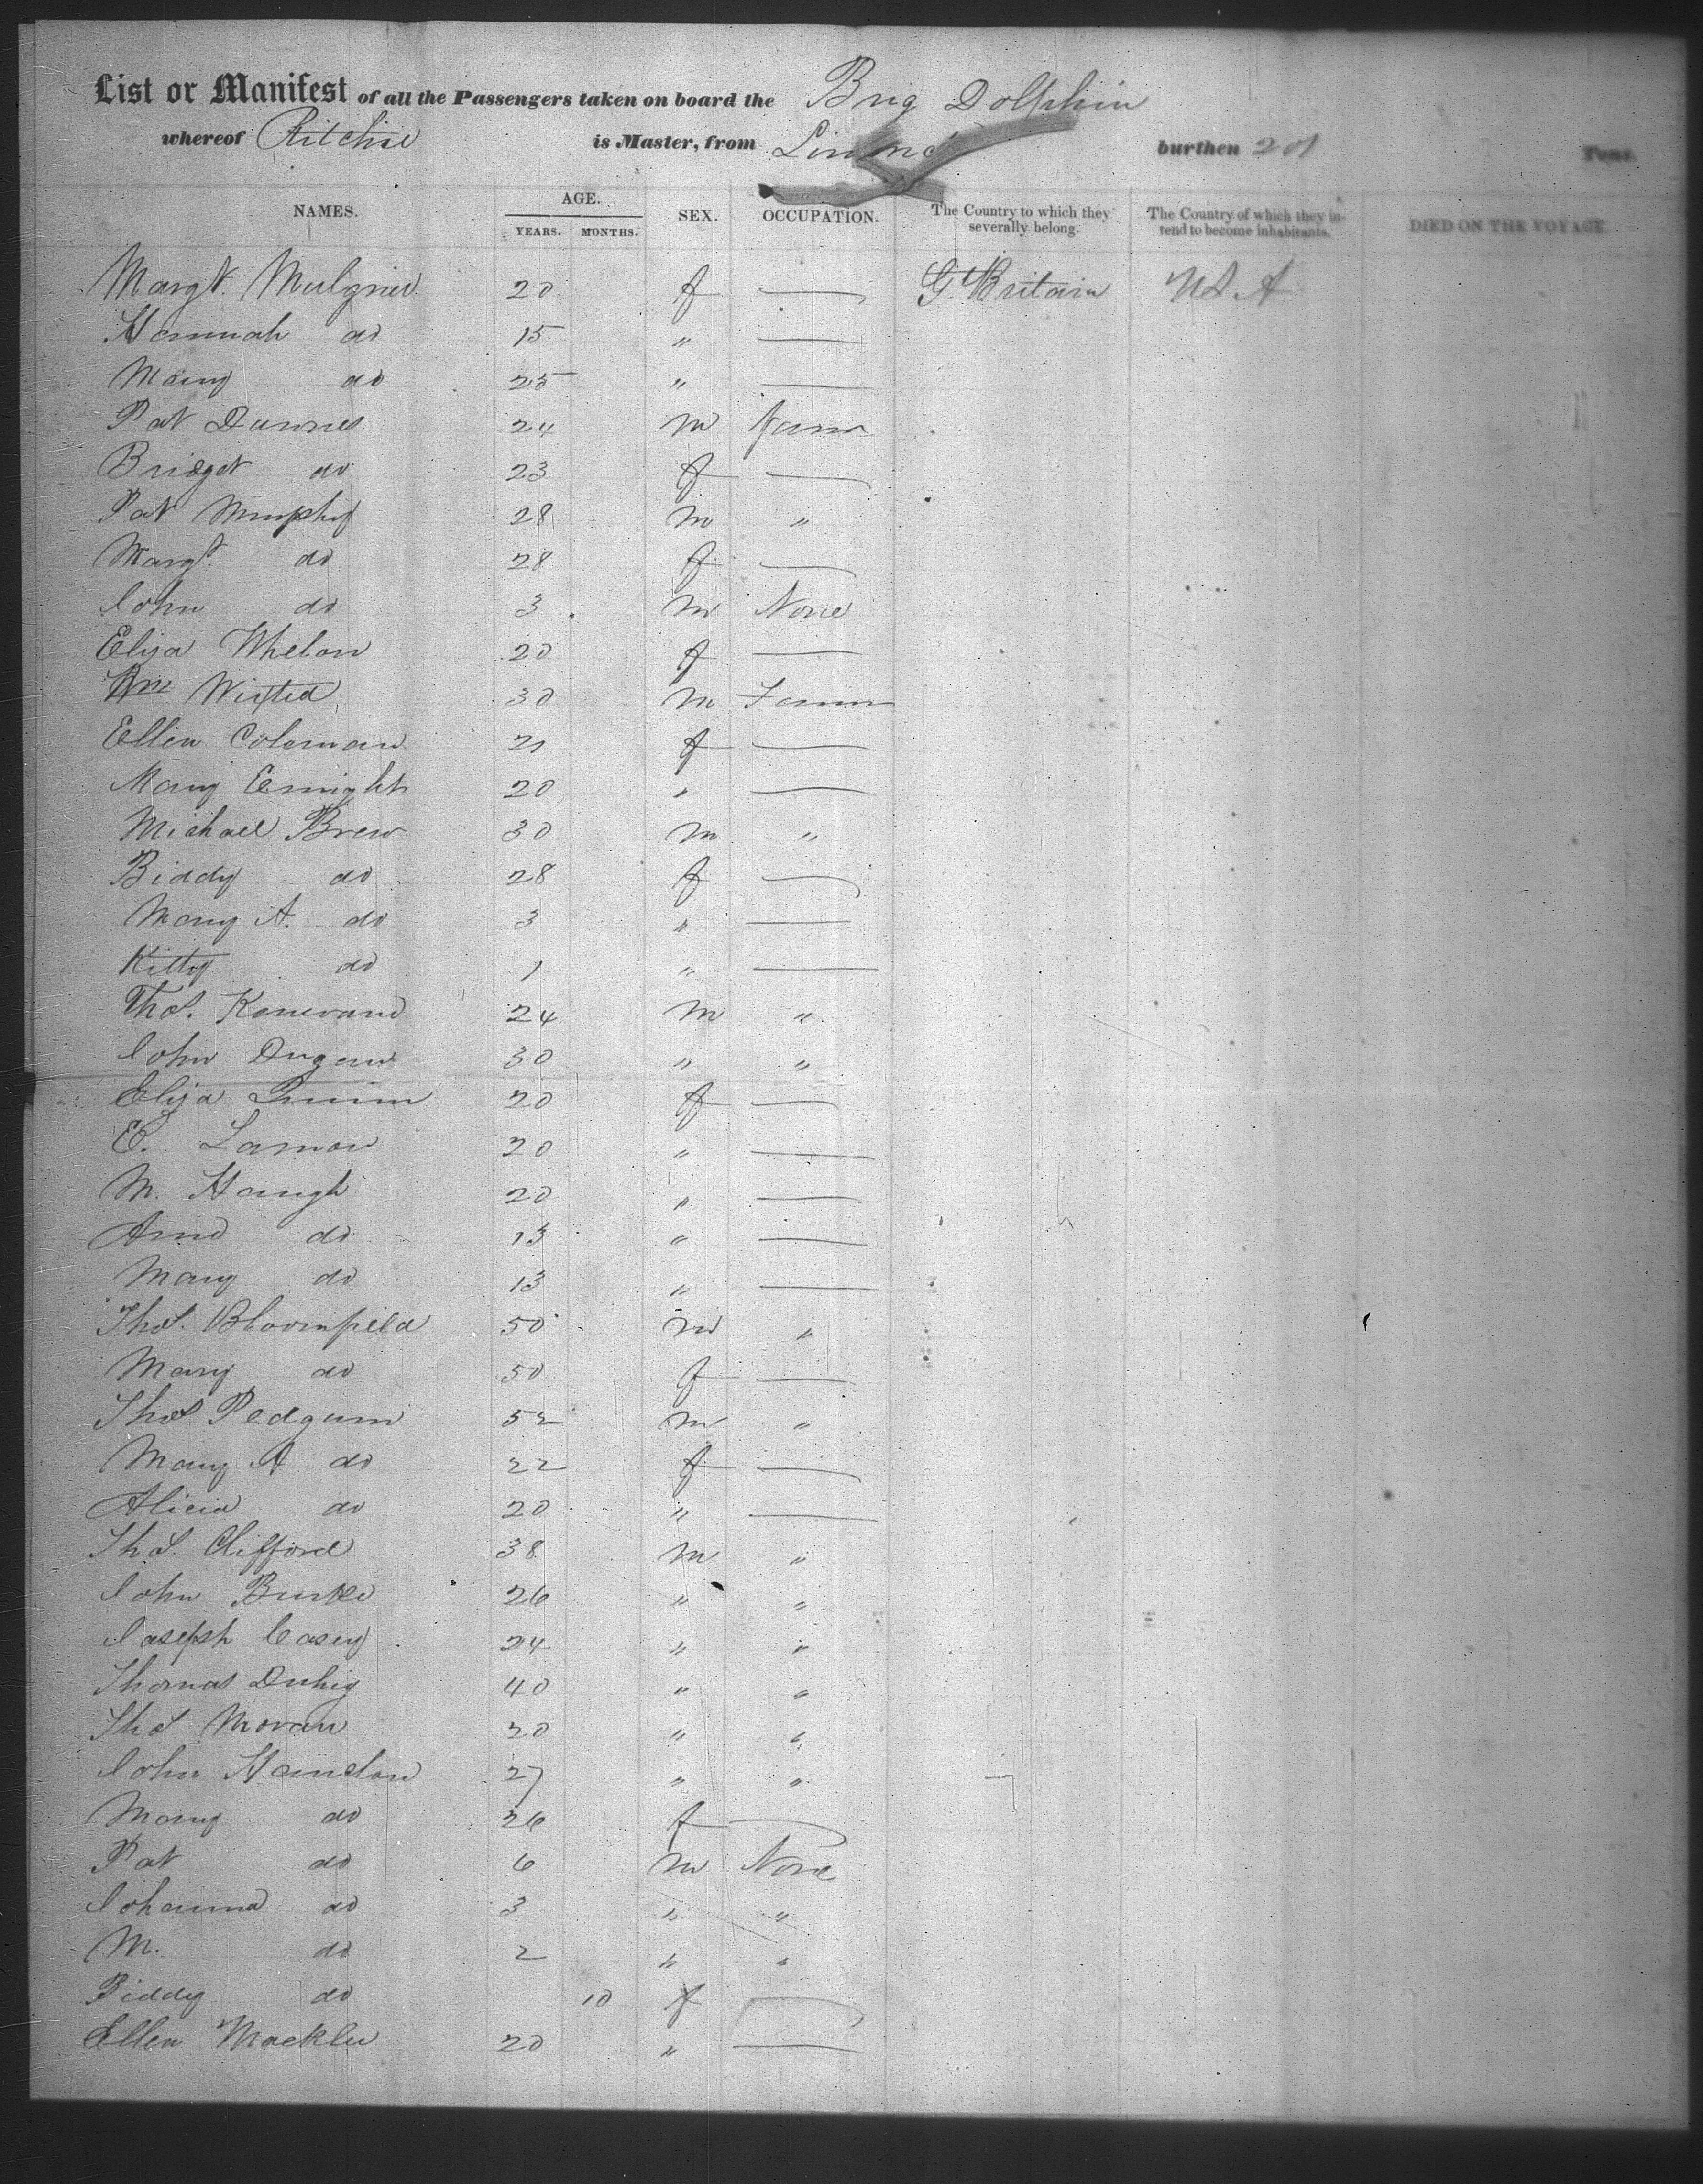 List or Manifest of all the Passengers taken on board the Brig Dolphin
whereof Ritchie is Master, from burthen 201 Tons.
NAMES. AGE. YEARS. MONTHS. SEX. OCCUPATION. The Country to which they severally belong. The Country of which they intend to become inhabitants. DIED ON THE VOYAGE.
Margt. 20 f — G. Britain U S A
Hannah do 15 " —
Mary do 25 " —
Pat Downes 24 m Farmr
Bridget do 23 f —
Pat Murphy 28 m "
Margt. do 28 f —
John do 3 m None
Eliza Whelan 20 f —
Wm Wixted 30 m Farmr
Ellen Coleman 21 f —
Mary Enright 20 " —
Michael Brew 30 m "
Biddy do 28 f —
Mary A. do 3 " —
Kitty do 1 " —
Thos. 24 m "
John Dugan 30 " "
Eliza Quinn 20 f —
E. 20 " —
M. Haugh 20 " —
Ann do 13 " —
Mary do 13 " —
Thos. Bloomfield 50 m "
Mary do 50 f —
Thos Pedgum 52 m "
Mary A do 22 f —
Alicia do 20 " —
Thos. Clifford 38 m "
John Burke 26 " "
Joseph Casey 24 " "
Thomas Duhig 40 " "
Thos Moran 20 " "
John 27 " "
Mary do 26 f —
Pat do 6 m None
Johanna do 3 " "
M. do 2 " "
Biddy do 10 f —
Ellen 20 " —